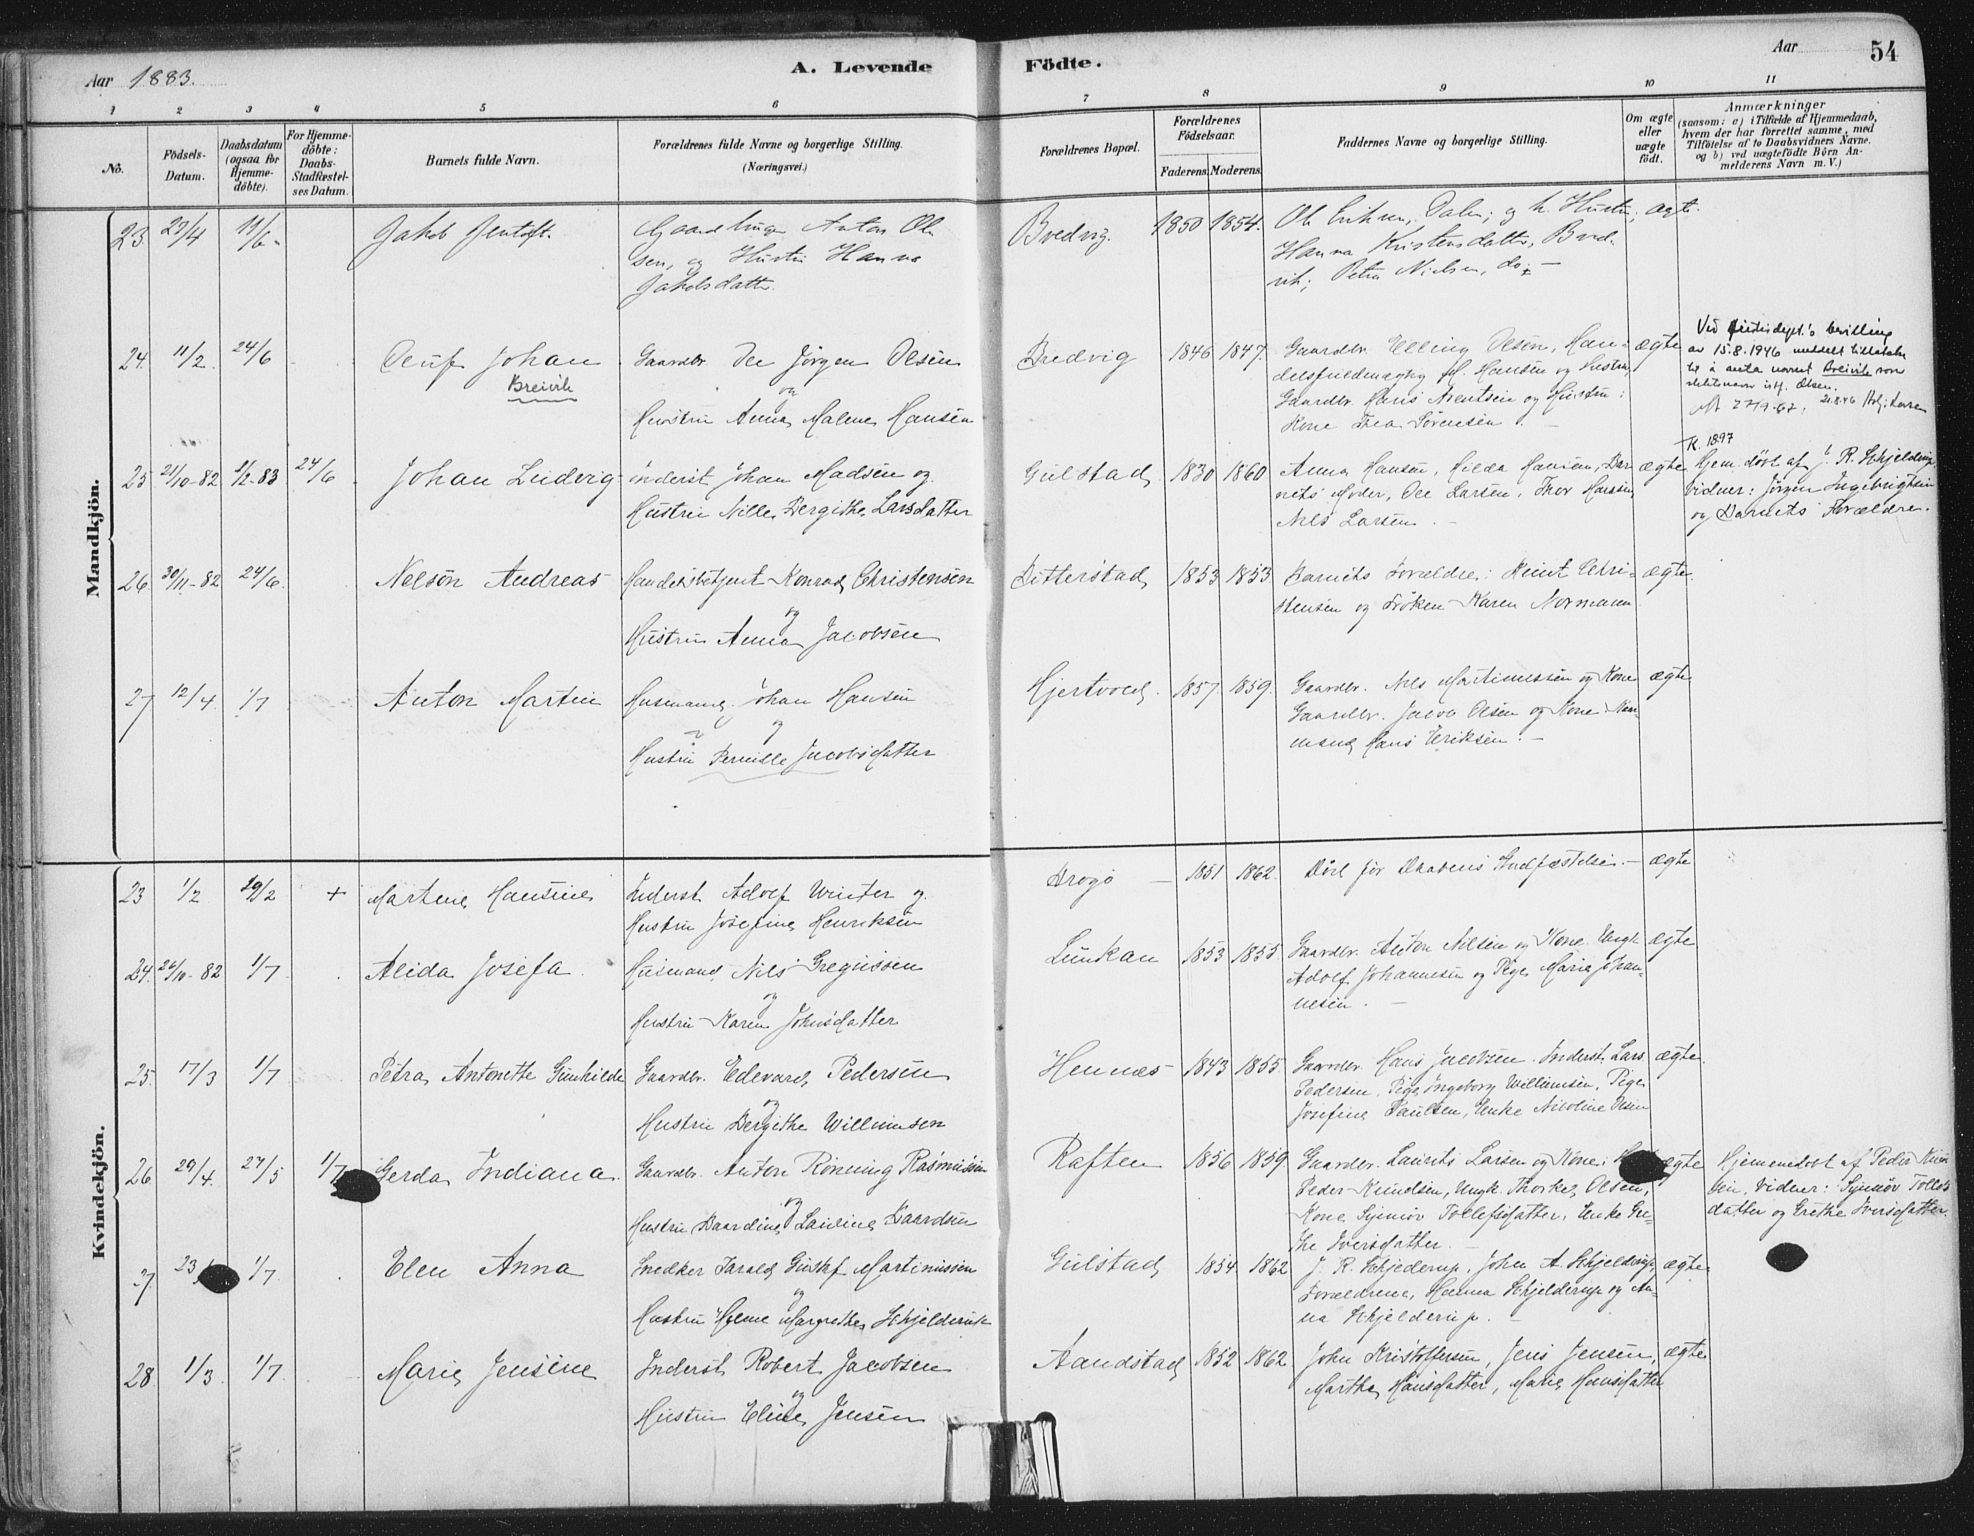 Aar 1883.
A. Levende
Födte.
Aar
54
1 2 3 4 5 6 7 8 9 10 11
No.
Födsels-
Datum.
Daabsdatum
(ogsaa for
Hjemme-
döbte).
For Hjemme-
döbte:
Daabs-
Stadfæstel-
ses Datum.
Barnets fulde Navn.
Forældrenes fulde Navne og borgerlige Stilling.
(Næringsvei.)
Forældrenes Bopæl.
Forældrenes
Födselsaar.
Faderens. Moderens.
Faddernes Navne og borgerlige Stilling.
Om ægte
eller
uægte
födt.
Anmærkninger
(saasom: a) i Tilfælde af Hjemmedaab,
hvem der har forrettet samme, med
Tilföielse af to Daabsvidners Navne.
og b) ved uægtefödte Börn An-
melderens Navn m. V.)
Mandkjön.
23. 29/4 11/6 Jakob Jentoft. Anton Ol- Bredvig. 1850 1854. Ole Eriksen, Dalen, og h. Hustru, ægte.
sen, og Hustru Hanna
Jakobsdatter
Hanna Kristensdatter, Bred-
vik; Petra Nielsen, do. —
24. 11/2. 24/6 Oluf Johan Gaardbr. Ole Jørgen Olsen Bredvig 1846 1847. Gaardbr. Elling Olsen, Han- ægte
Breivik
og
Hustru Anna Malene Hansen
delsfuldmægtig M. Hansen og Hustru,
Gaardbr. Hans Arentsen og Hustru;
Kone Thea Sörensen.
Ved Justisdept.'s bevilling
av 15.8.1946 meddelt tillatelse
til å anta navnet Breivik som
slektsnavn istf. Olsen.
25 21/10-82 1/2-83 24/6 Johan Ludvig Inderst Johan Madsen og Gulstad 1830 1860 Anna Hansen, Hilda Hansen, Bar- ægte
Hustru Nille Bergithe Larsdatter
nets Moder, Ole Larsen, Thor Hansen,
Nils Larsen. —
K. 1897
Hjem. döbt af J. R. Schjelderup
Vidner: Jörgen Ingebrigtsen
og Barnets Forældre.
26. 30/11-82 24/6. Nelson Andreas Handelsbetjent Konrad Christensen Ditterstad 1853 1853 Barnets Forældre; Knut Chri- ægte.
og
Hustru Anna Jacobsen
stensen og Fröken Karen Normann
27 12/4 1/7 Anton Martin Husmand Johan Hansen Hjertvold. 1857. 1859. Gaardbr. Nils Martinussen og Kone ægte
og
Hustru Pernille Jacobsdatter
Gaardbr. Jacob Olsen og Kone.
mand Hans Eriksen. —
Kvindekjön.
23 1/2 29/2 + Martine Hansine Inderst Adolf Winter og Brogö — 1851 1862. Död för Daabens Stadfæstelse. — ægte
Hustru Josefine Henriksen
24. 26/11-82 1/7 Alida Josefa. Husmand Nils Gregussen Lunkan 1853 1855 Gaardbr. Anton Nilsen og Kone. Ungk. ægte
og
Hustru Karen Johnsdatter
Adolf Johannesen og Pige Marie Johan-
nesen. —
25. 17/3 1/7 Petra Antonette Gunhilde Gaardbr. Edevard Pedersen Hennæs 1843 1855 Gaardbr. Hans Jacobsen. Inderst. Lars ægte.
og
Hustru Bergithe Willumsen
Pedersen, Pige Ingeborg Willumsen, Pige
Josefine Paulsen, Enke Nicoline Olsen
26 29/4. 27/5 1/7 Gerda Indiana. Gaardbr. Anton Rönning Rasmussen Raften 1856 1859 Gaardbr. Laurits Larsen og Kone; ægte
og
Hustru Baardine Lauline Baardsen
Peder Knudsen, Ungk. Thorkel Olsen,
Kone Synnöv Tollefsdatter, Enke Gre-
the Iversdatter. —
Hjemmedöbt af Peder Knud-
sen. Vidner: Synnöv Tollefs-
datter og Grethe Iversdatter.
27 23 1/7. Elen Anna Snedker Harald Gustaf Martinussen Gulstad 1854. 1862 J. R. Schjelderup, John A. Schjelderup, ægte
og
Hustru Helene Margrethe Schjelderup
Forældrene, Hanna Schjelderup og An-
na Schjelderup. —
28 1/3 1/7. Marie Jensine Inderst Robert Jacobsen Aandstad 1852 1862 John Kristoffersen, Jens Jensen, ægte
og
Hustru Eline Jensen
Martha Hansdatter, Marie Hansdatter